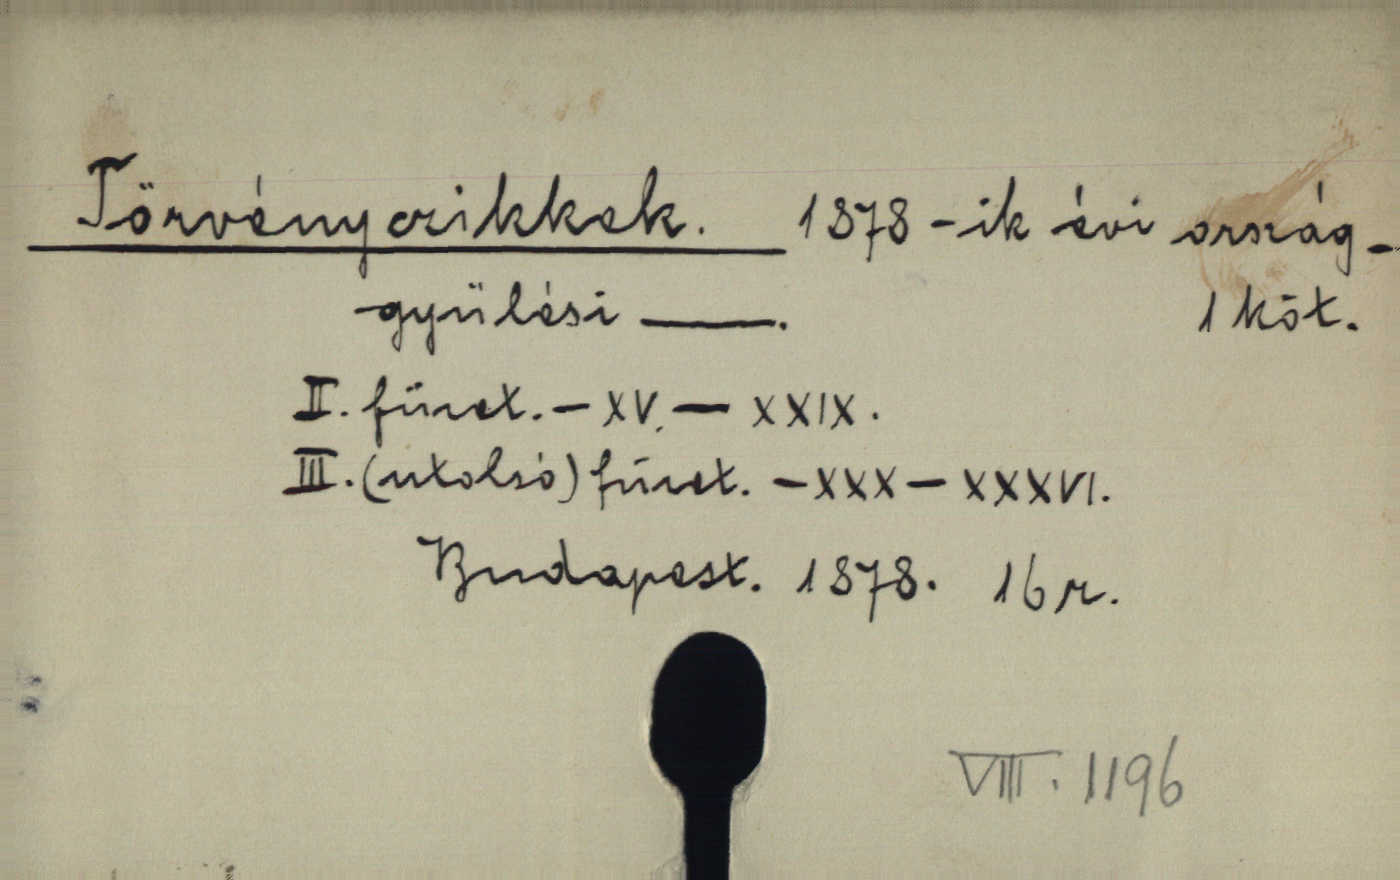 Törvényczikkek. 1878-ik évi ország-
gyülési ——. 1 köt.
II. füzet. - XV. - XXIX.
III. (utolsó) füzet. - XXX - XXXVI.
Budapest. 1878. 16 r.
VIII. 1196